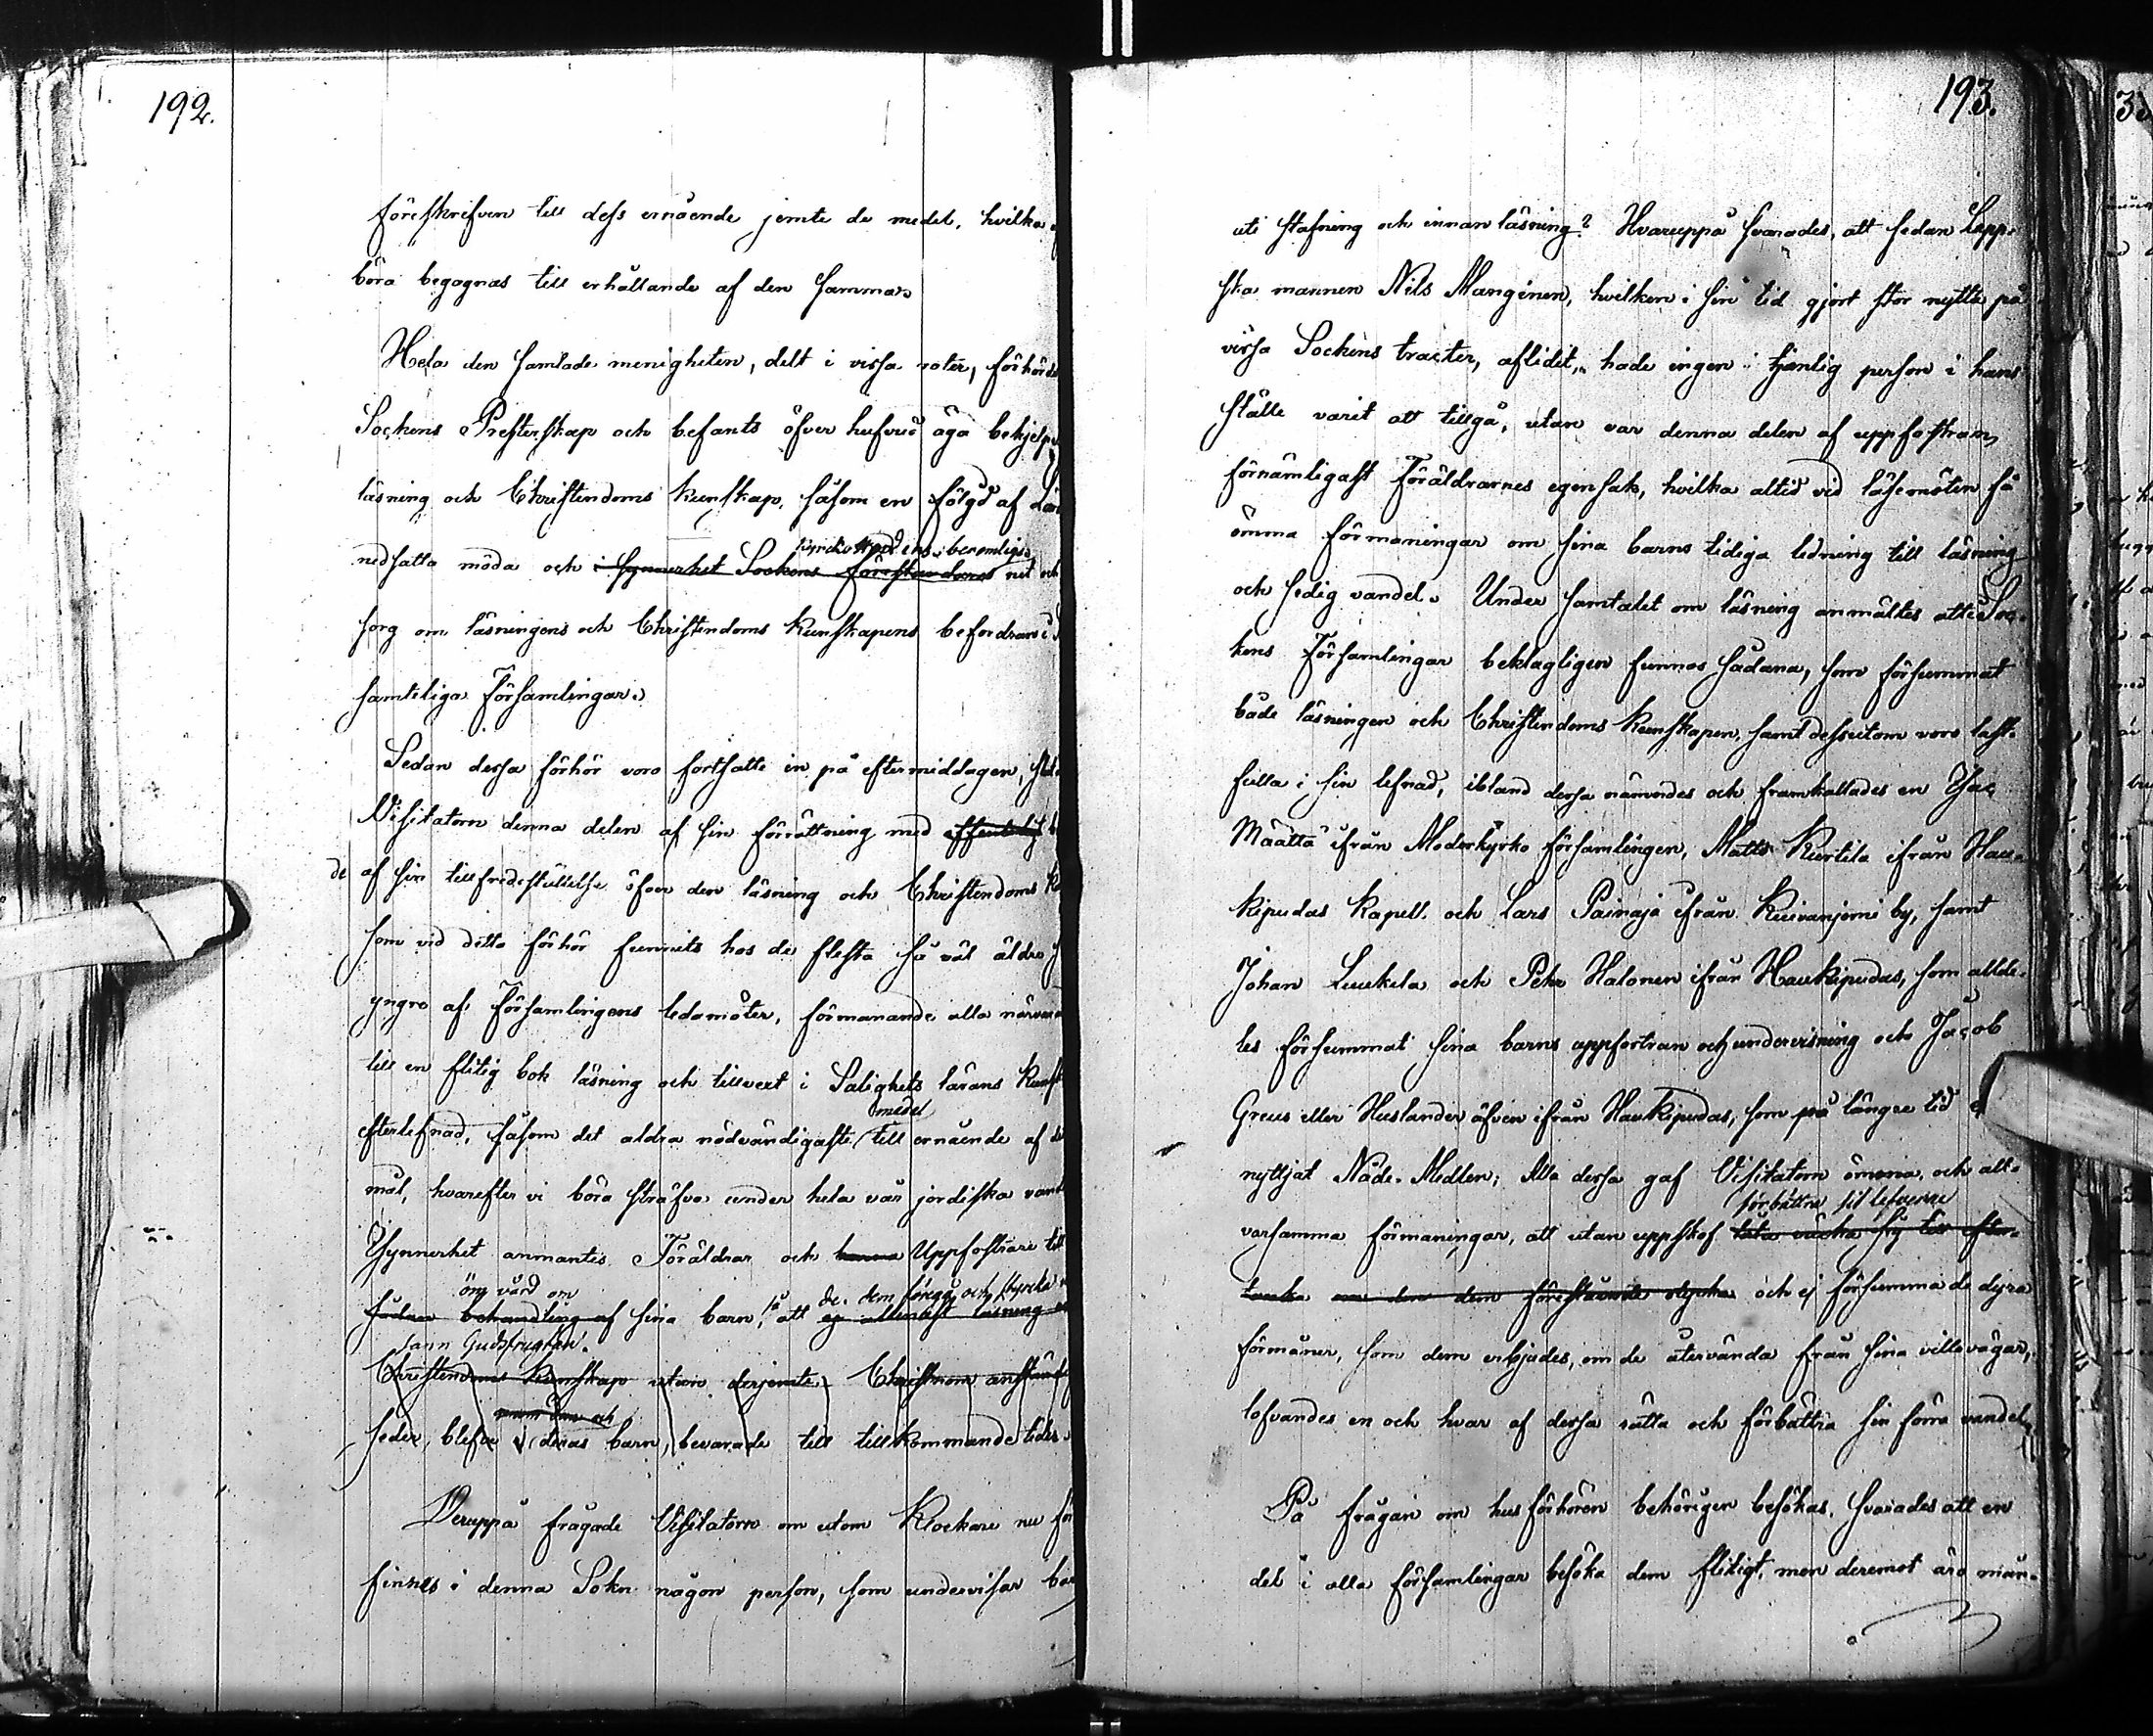 192.
föreskrifven till dess ernående jemte de medel, hvilka
böra begagnas till erhållande af den samma.
Hela den samlade menigheten, delt i vissa roter, förhörde
Sockens Presterskap och befants öfver hufvud äga behjelp
läsning och Christendoms kunskap, såsom en följd af Lär
kyrkoherdens berömliga
nedsatta möda och i synnerhet Sockens föreståndares nit och
sorg om läsningens och Christendoms kunskapens befordran i
samteliga Församlingar.
Sedan dessa förhör voro fortsatte in på eftermiddagen,
Visitatorn denna delen af sin förrättning med offenteligt
de af sin tillfredsställelse öfver den läsning och Christendoms
som vid detta förhör funnits hos de flesta så väl äldre
yngre af Församlingens ledamöter, förmanande alla närvara
till en flitig bok läsning och tillvext i Salighets lärans kunsk
medel
efterlefnad, såsom det aldra nödvändigaste till ernående af
mål, hvarefter vi böra sträfva under hela vår jordiska vand
Isynnerhet anmantes Föräldrar och Uppfostrare till
öm vård om så de dem föregå och styrka
sådan behandling af sina barn, att ej allenast läsning
sann Gudsfrugtan.
Christendoms kunskap utan derjemte Christnom anstånde
seder, blefve deras barn, bevarade till tillkommande tider.
Deruppå frågade Visitatorn om utom Klockare nu
finnes i denna Sokn någon person, som undervisar bar
193.
uti stafning och innan läsning? Hvaruppå svarades, att sedan Lapp-
ska mannen Nils Manginen, hvilken i sin tid gjort stor nytta på
vissa Sockens tracter, aflidit, hade ingen tjenlig person i hans
ställe varit att tillgå, utan var denna delen af uppfostran
förnämligast Föräldrarnes egen sak, hvilka altid vid läsemöten få
ömma förmaningar om sina barns tidiga ledning till läsning
och sedig vandel. Under samtalet om läsning anmältes att i Soc-
kens Församlingar beklagligen funnos sådana, som försummat
både läsningen och Christendoms kunskapen, samt dessutom voro last-
fulla i sin lefnad, ibland dessa nämndes och framkallades en Isac
Määttä ifrån Moderkyrko församlingen, Matts Kurtila ifrån Hau-
kipudas Kapell och Lars Painaja ifrån Kuivanjemi by, samt
Johan Luukela och Pehr Halonen ifrån Haukipudas, som allde-
les försummat sina barns uppfostran och undervisning och Jacob
Greus eller Huslander äfven ifrån Haukipudas, som på längre tid ej
nyttjat Nåde-Medlen; Alla dessa gaf Visitatorn ömma och all-
förbättra sit lefverne
varsamma förmaningar, att utan uppskof låta väcka sig till efter-
tanka om den dem förestående olycka och ej försumma de dyra
förmåner, som dem erbjudes, om de återvända från sina villovägar,
lofvandes en och hvar af dessa rätta och förbättra sin förra vandel.
På frågan om husförhören behörigen besökas, svarades att en
del i alla församlingar besöka dem flitigt, men deremot äro mån-